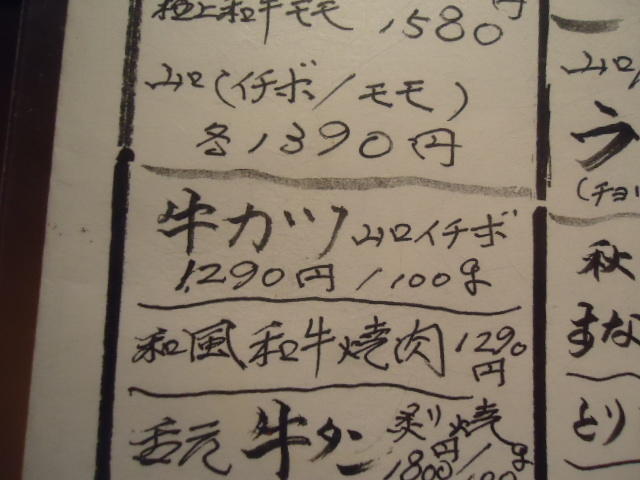 極上和牛モモ 1580円
山口(イチボ/モモ)
各1390円
牛カツ山口イチボ
1290円/100g
和風和牛焼肉1290円
舌元牛タン炙り焼
1800円/100g
山口
ラ
(チョ
秋
すな
とり